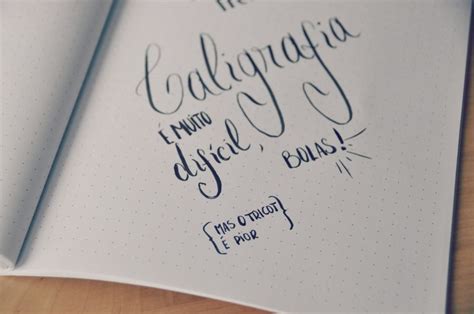 Caligrafia
É MUITO
difícil,
BOLAS!
{MAS O TRICOT}
É PIOR